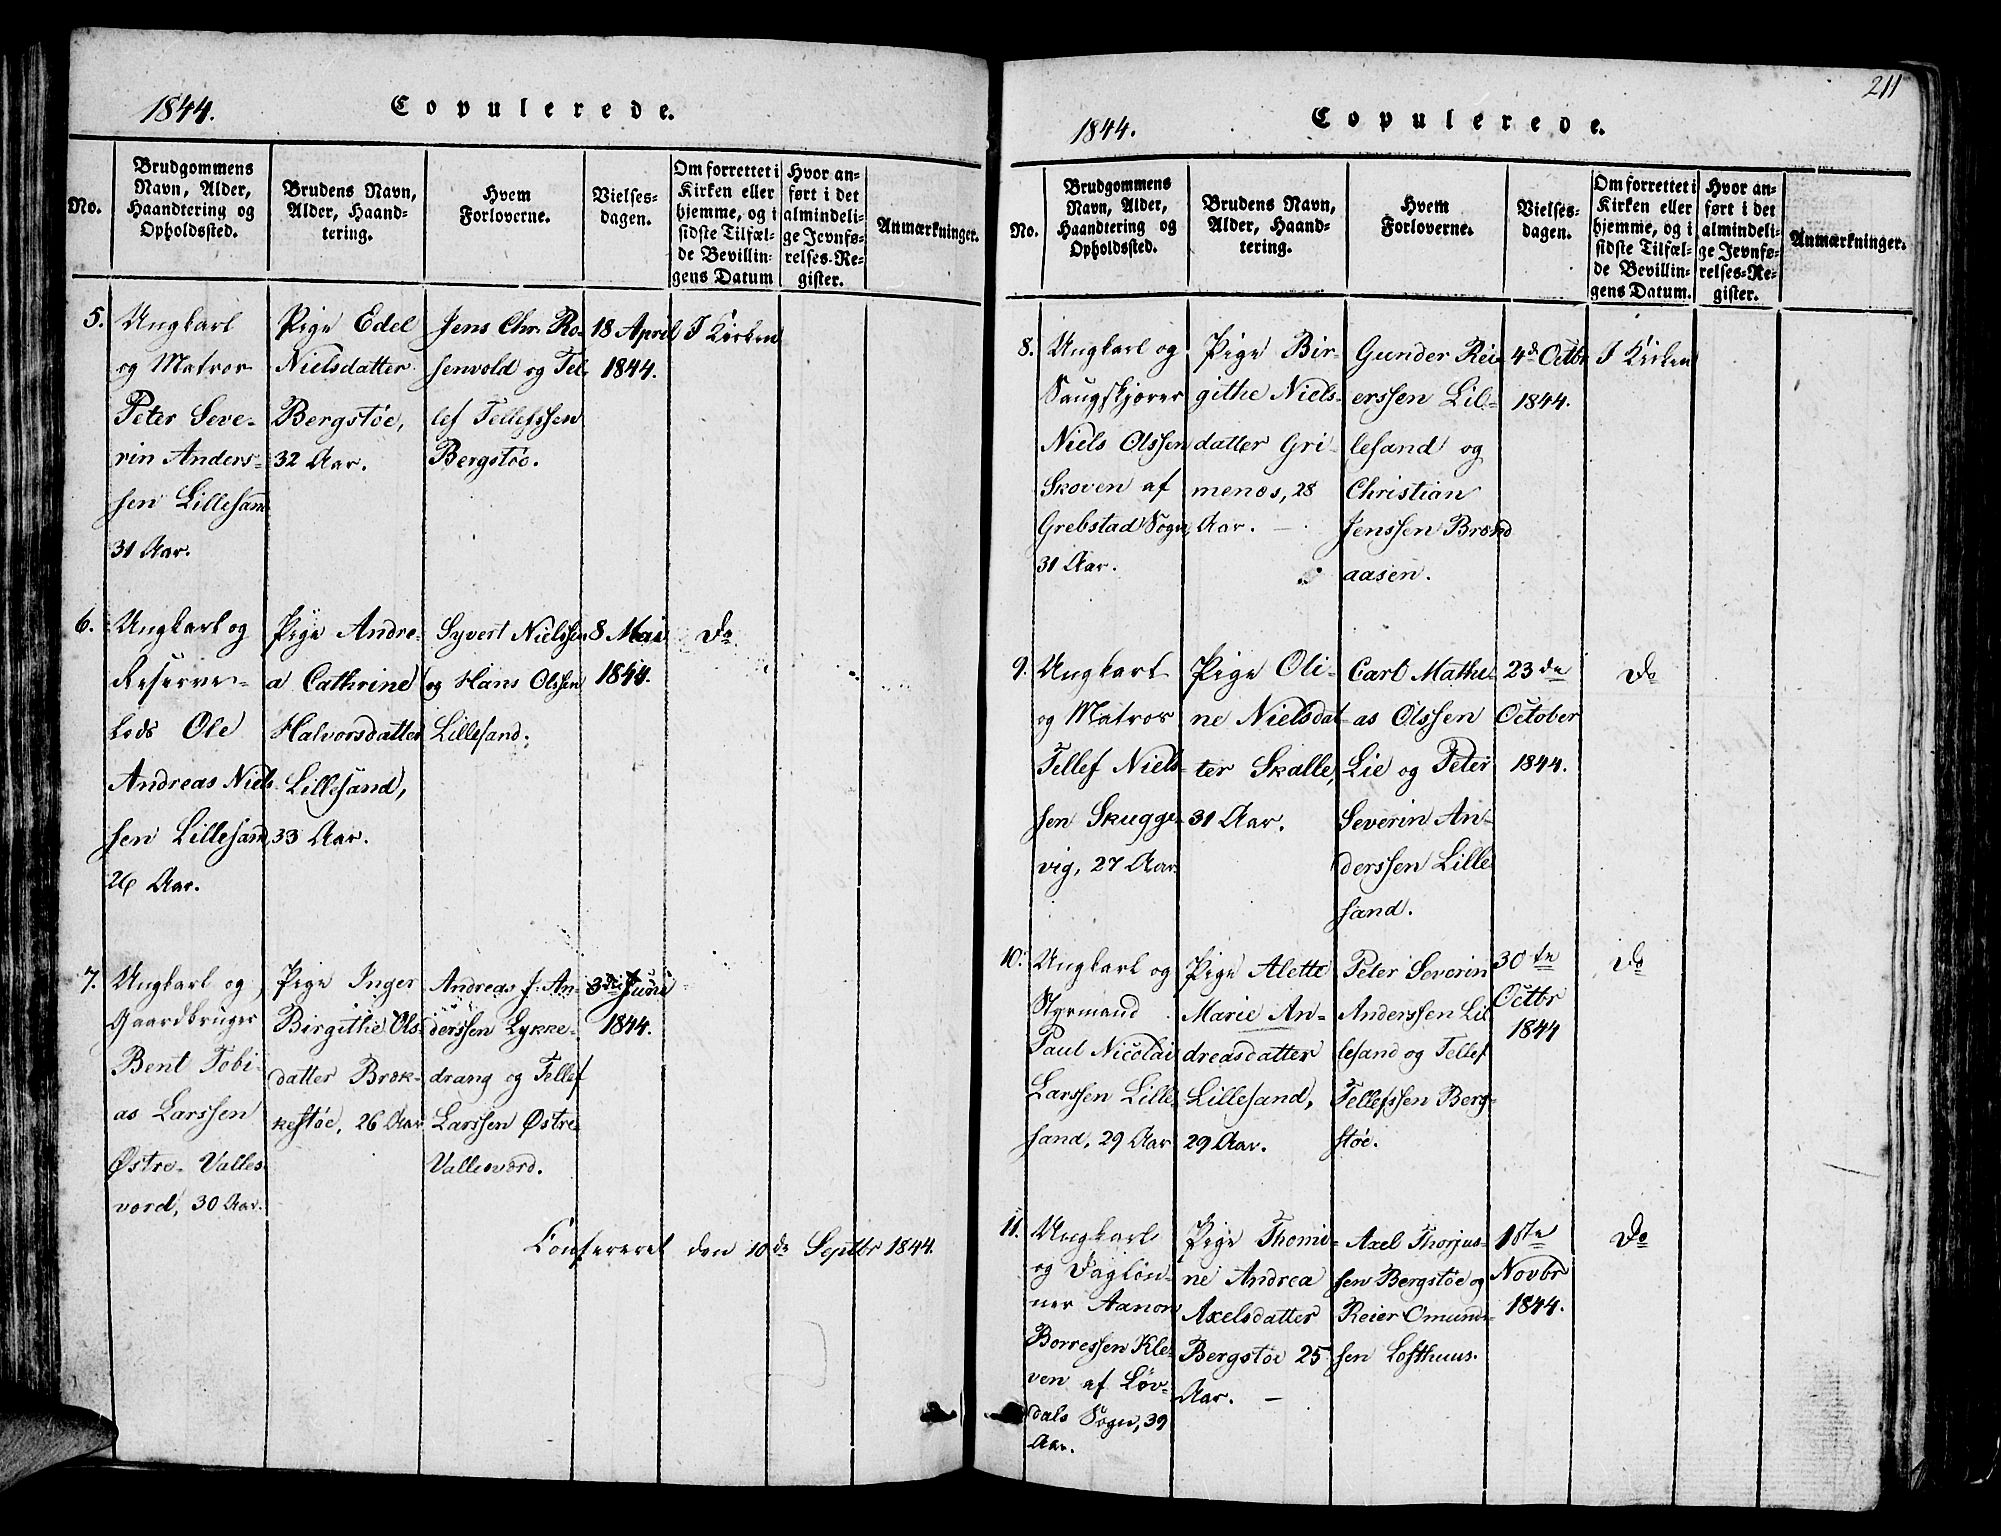 1844.
Copulerede.
No.
Brudgommens
Navn, Alder,
Haandtering og
Opholdssted.
Brudens Navn,
Alder, Haand-
tering.
Hvem
Forloverne.
Vielses-
dagen.
Om forrettet i
Kirken eller
hjemme, og i
sidste Tilfæl-
de Bevillin-
gens Datum
Hvor an-
ført i det
almindeli-
ge Jevnfø-
relses-Re-
gister.
Anmærkninger.
5.
Ungkarl
og Matros
Peter Seve-
rin Anders-
sen Lillesand
31 Aar.
Pige Edel
Nielsdatter
Bergstøe,
32 Aar.
Jens Chr. Ro-
senvold og Tel-
lef Tellefssen
Bergstøe.
18 April
1844.
I Kirken
6.
Ungkarl og
Reserve-
Lods Ole
Andreas Niels
sen Lillesand
26 Aar.
Pige Andre-
a Cathrine
Halvorsdatter
Lillesand,
33 Aar.
Syvert Nielssen
og Hans Olssen
Lillesand.
8 Mai
1844.
Do
7.
Ungkarl og
Gaardbruger
Bent Tobi-
as Larssen
Østre-Valles
værd, 30 Aar.
Pige Inger
Birgithe Ols
datter Bræk-
kestøe, 26 Aar
Andreas J. An-
derssen Lykke-
drang og Tellef
Larssen Østre
Vallesværd.
3die Juni
1844.
Confereret den 10de Septbr 1844.
211
1844.
Copulerede.
No.
Brudgommens
Navn, Alder,
Haandtering og
Opholdssted.
Brudens Navn,
Alder, Haand-
tering.
Hvem
Forloverne.
Vielses-
dagen.
Om forrettet i
Kirken eller
hjemme, og i
sidste Tilfæl-
de Bevillin-
gens Datum.
Hvor an-
ført i det
almindeli-
ge Jevnfø-
relses-Re-
gister.
Anmærkninger.
8.
Ungkarl og
Saugskjører
Niels Olssen
Skoven af
Grebstad Sogn,
31 Aar.
Pige Bir-
githe Niels-
datter Gri-
menæs, 28
Aar. —
Gunder Rei
erssen Lil-
lesand og
Christian
Jenssen Brænd
aasen.
4de Octbr
1844.
I Kirken
9.
Ungkarl
og Matros
Tellef Niels-
sen Skugge-
vig, 27 Aar.
Pige Oli-
ne Nielsdat-
ter Skalle,
31 Aar.
Carl Mathi-
as Olssen
Lie og Peter
Severin An-
derssen Lille
sand.
23de
October
1844.
Do
10.
Ungkarl og
Styrmand
Paul Nicolai
Larssen Lille
sand, 29 Aar
Pige Alette
Marie An-
dreasdatter
Lillesand,
29 Aar.
Peter Severin
Anderssen Lil
lesand og Tellef
Tellefssen Berg-
støe.
30te
Octbr
1844
Do
11.
Ungkarl
og Dagløn-
ner Aanon
Borressen Kle-
ven af Løv-
dals Sogn, 39
Aar.
Pige Thomi-
ne Andrea
Axelsdatter
Bergstøe 25
Aar. —
Axel Thorjus-
sen Bergstøe og
Reier Omund-
sen Lofthuus.
1ste
Novbr
1844.
Do